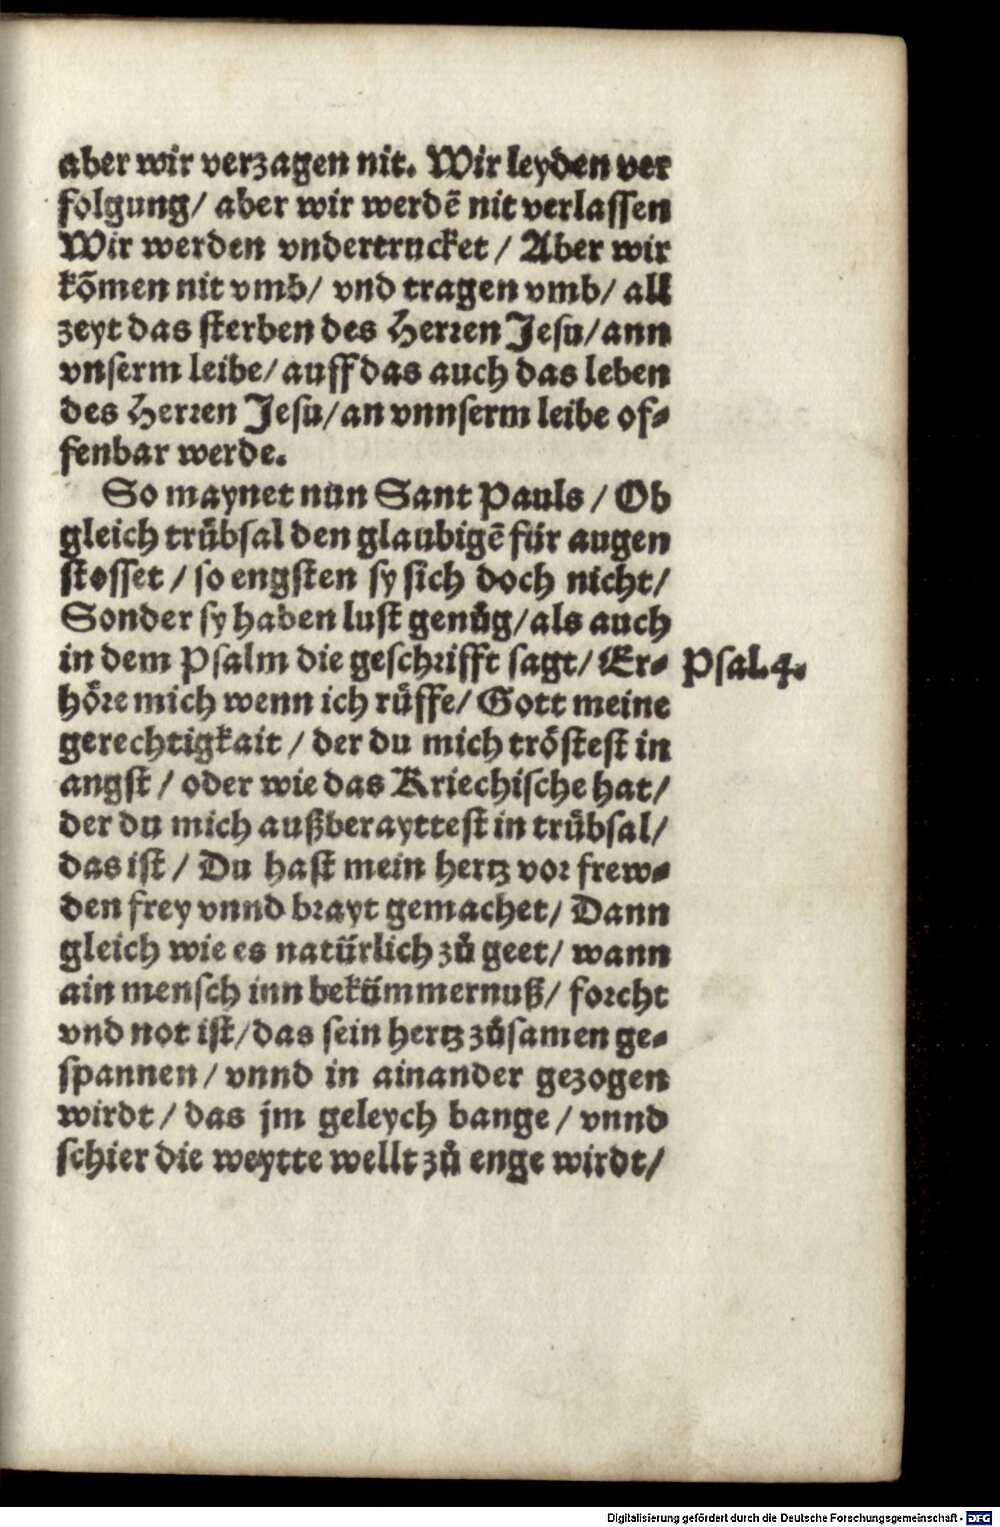 aber wir verzagen nit. Wir leyden ver
folgung/ aber wir werdē nit verlassen
Wir werden vndertrucket / Aber wir
kōmen nit vmb/ vnd tragen vmb/ all
zeyt das sterben des Herren Jesu/ ann
vnserm leibe/ auff das auch das leben
des Herren Jesu/ an vnnserm leibe of-
fenbar werde.
So maynet nun Sant Pauls / Ob
gleich trübsal den glaubigē für augen
stosset / so engsten sy sich doch nicht/
Sonder sy haben lust genůg/ als auch
in dem Psalm die geschrifft sagt/ Er-
Psal.4.
höre mich wenn ich rüffe/ Gott meine
gerechtigkait / der du mich tröstest in
angst / oder wie das Kriechische hat/
der du mich außberayttest in trübsal/
das ist / Du hast mein hertz vor frew-
den frey vnnd brayt gemachet/ Dann
gleich wie es natürlich zů geet/ wann
ain mensch inn bekümmernuß/ forcht
vnd not ist/ das sein hertz zůsamen ge-
spannen / vnnd in ainander gezogen
wirdt / das jm geleych bange / vnnd
schier die weytte wellt zů enge wirdt/
Digitalisierung gefördert durch die Deutsche Forschungsgemeinschaft - DFG